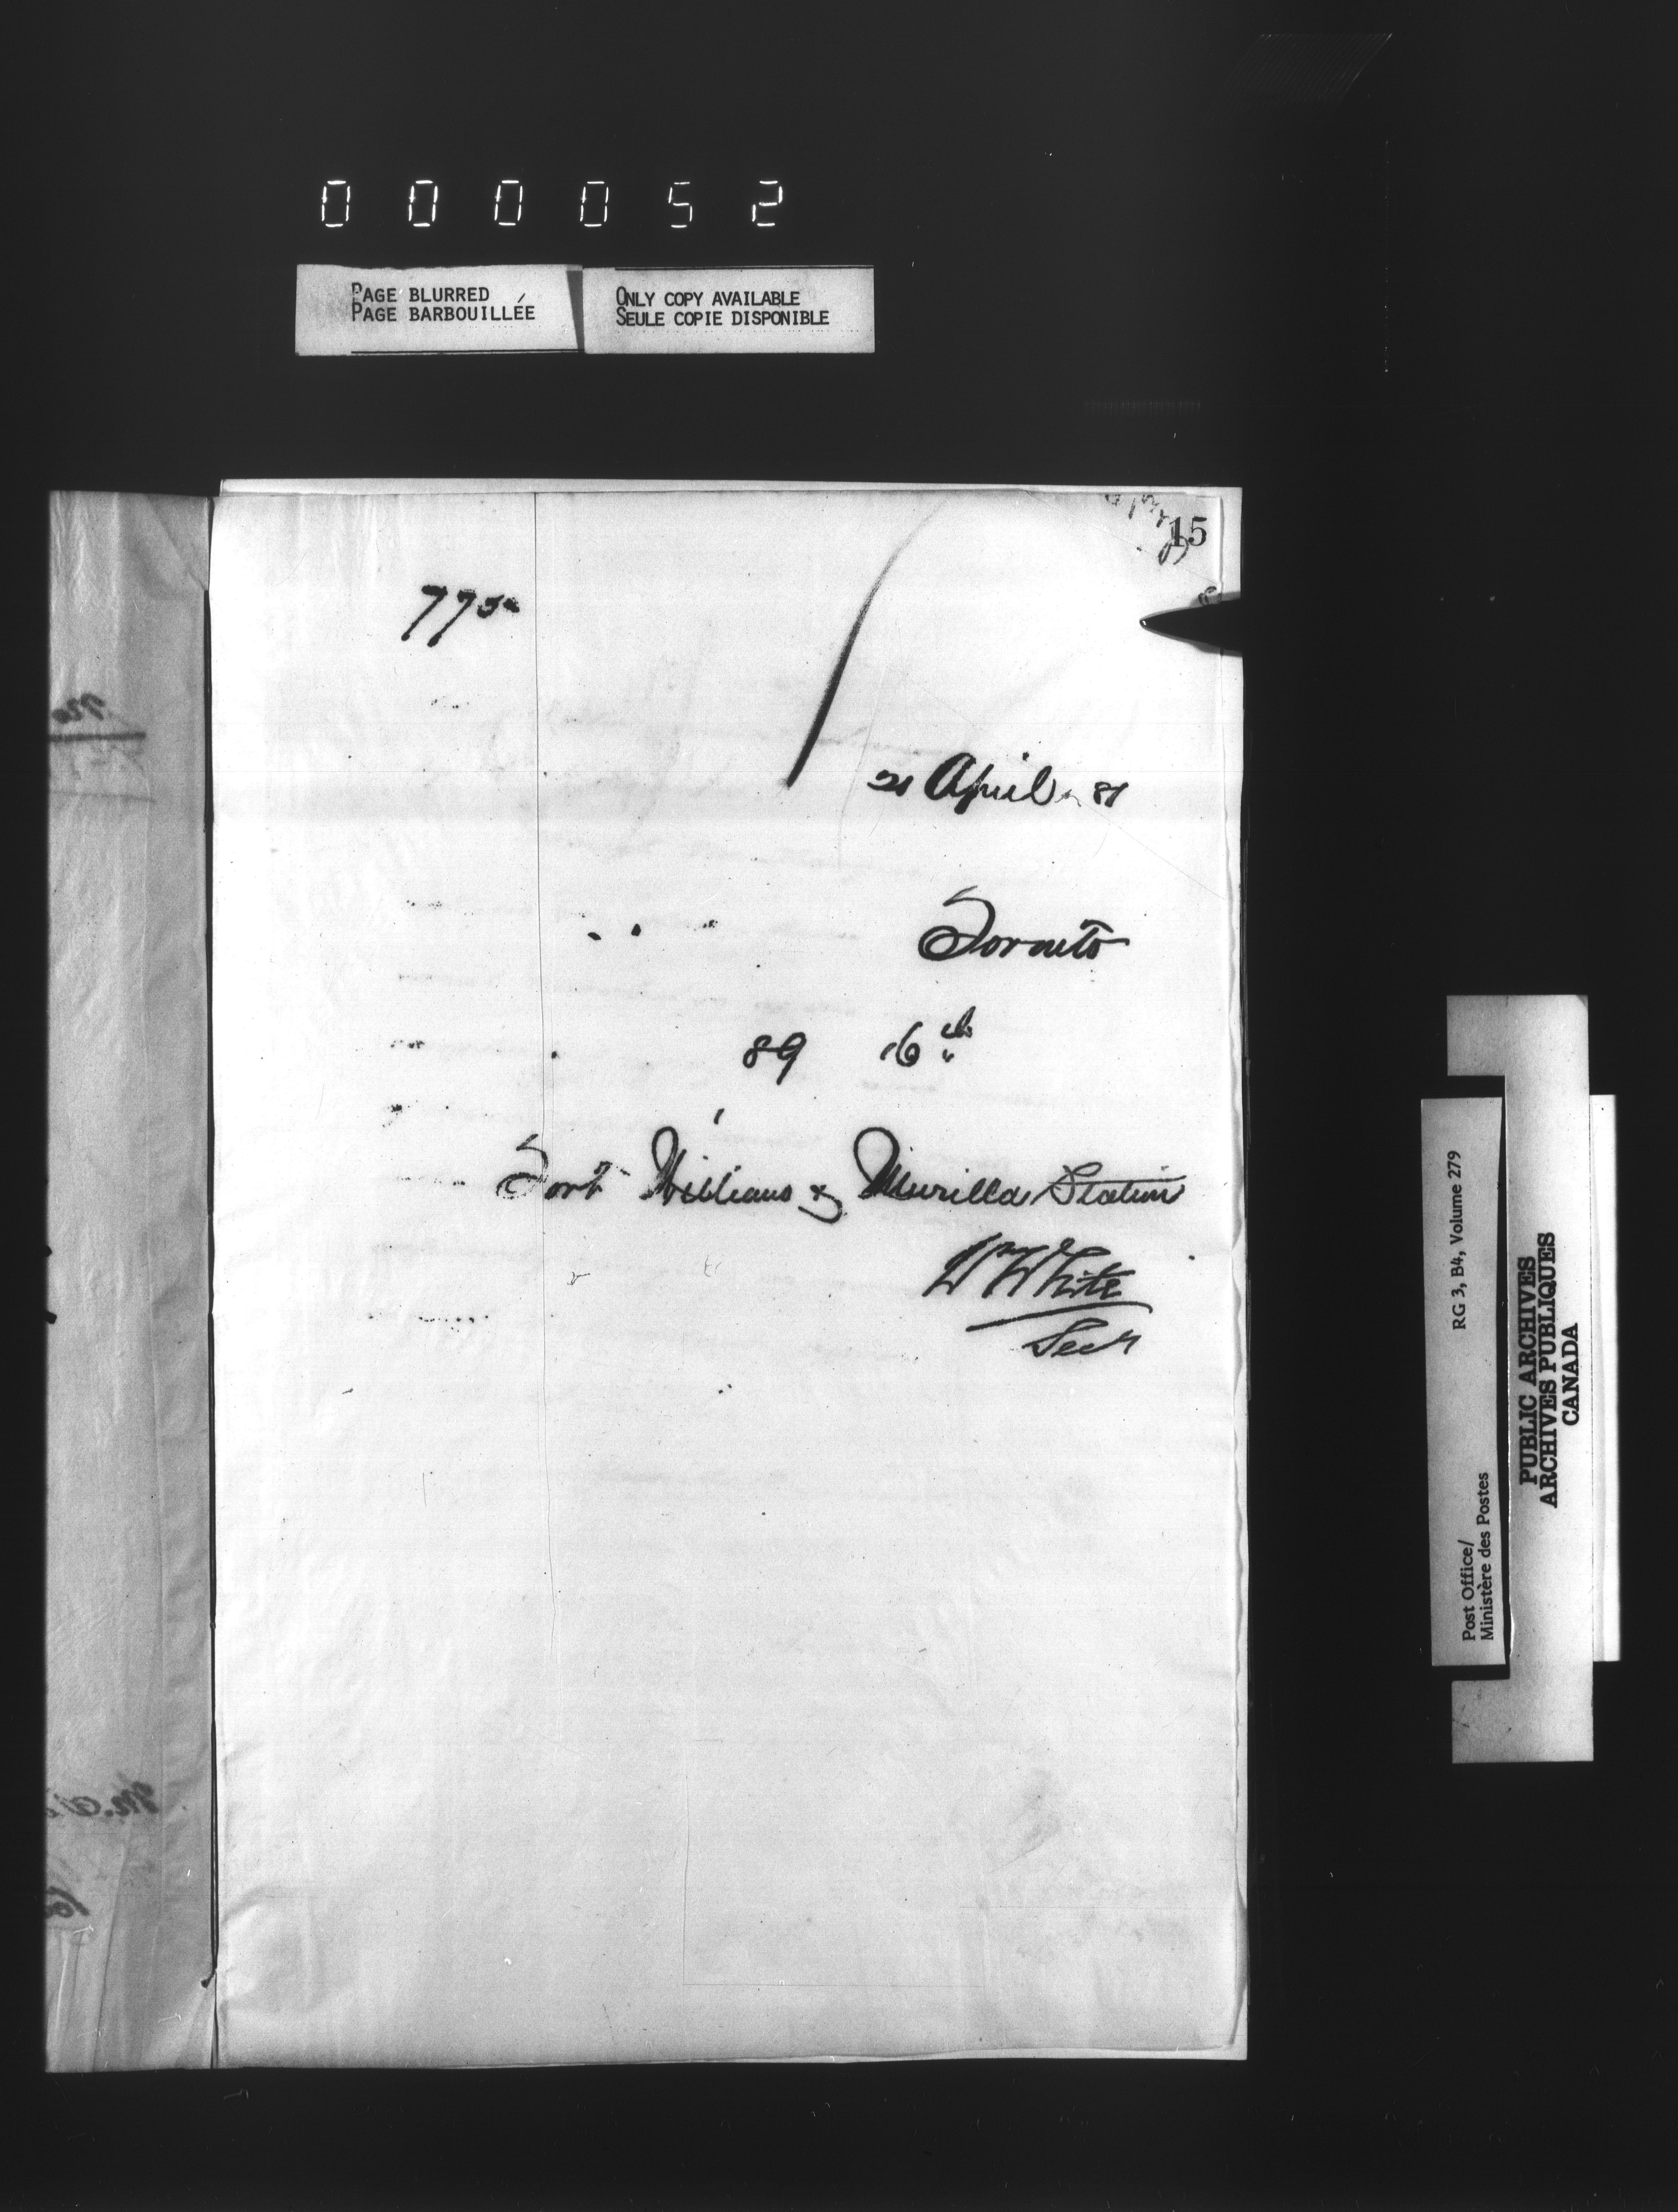 000052
PAGE BLURRED
PAGE BARBOUILLÉE
ONLY COPY AVAILABLE
SEULE COPIE DISPONIBLE
15
775
21 April 81
Toronto
89 16th
Fort William & Murilla Station
W White
Secr
RG 3, B4, Volume 279
Post Office/
Ministère des Postes
PUBLIC ARCHIVES
ARCHIVES PUBLIQUES
CANADA